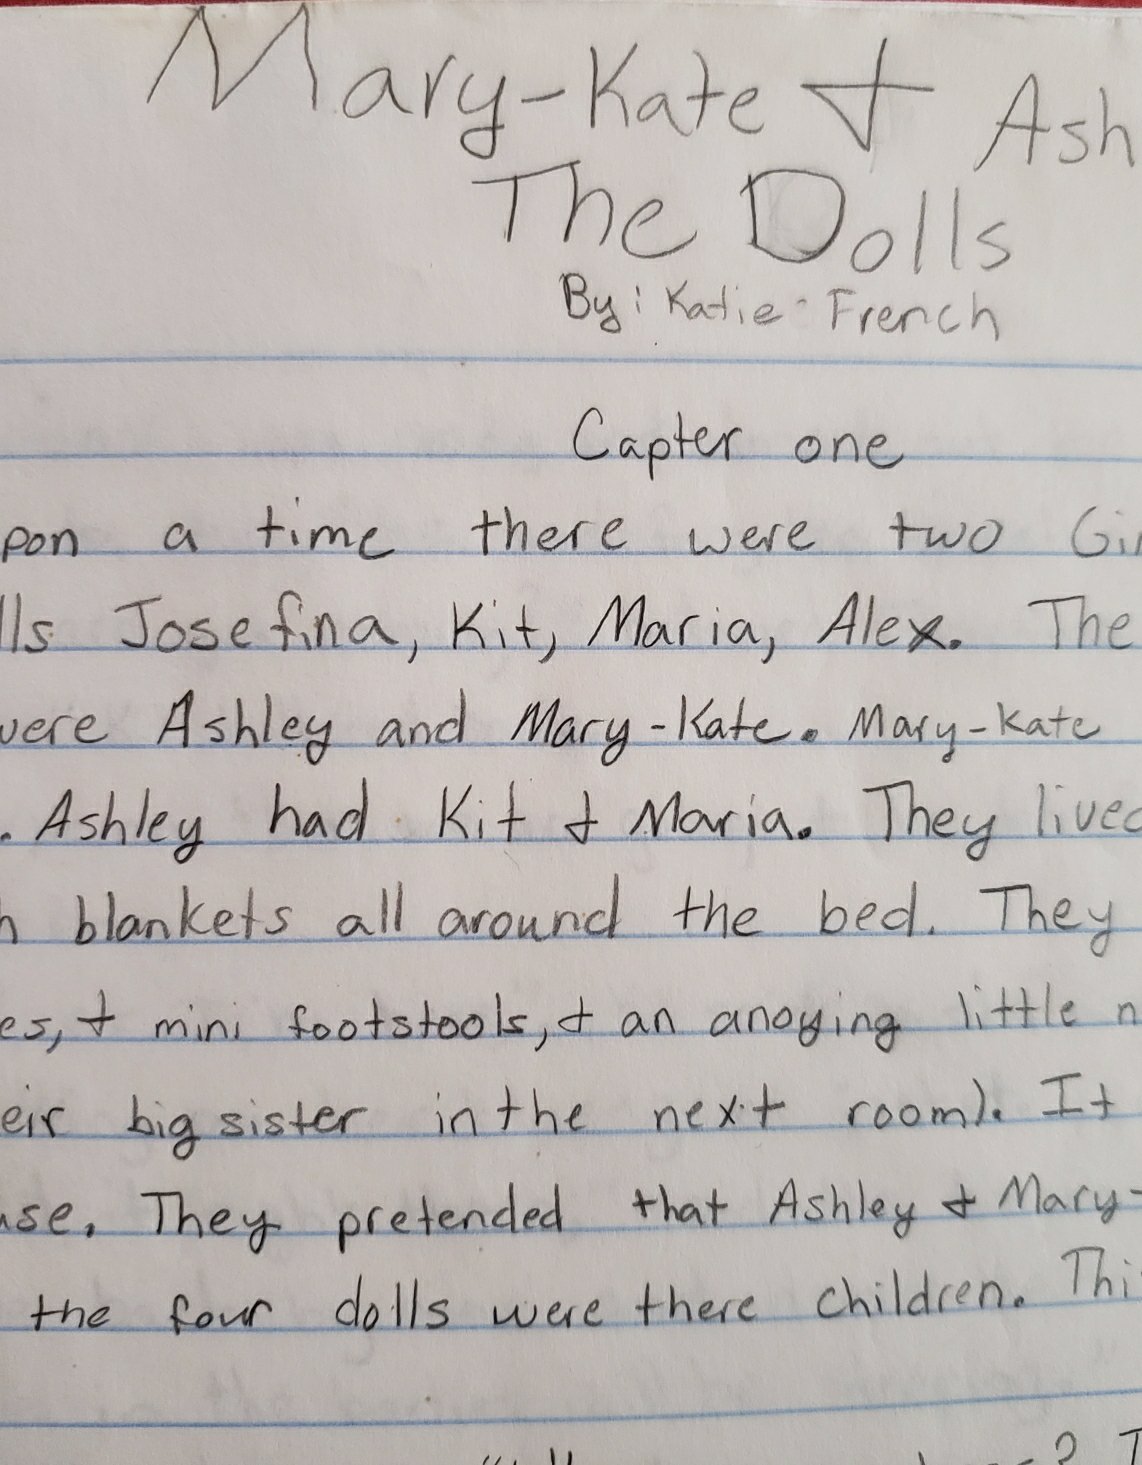 Mary-Kate & Ash
The Dolls
By: Katie French
Capter one
pon a time there were two Gir
lls Josefina, Kit, Maria, Alex. The
were Ashley and Mary-Kate. Mary-Kate
. Ashley had Kit & Maria. They lived
h blankets all around the bed. They
es, & mini footstools, & an anoying little n
eir big sister in the next room). It
use. They pretended that Ashley & Mary-
the four dolls were there children. Thi